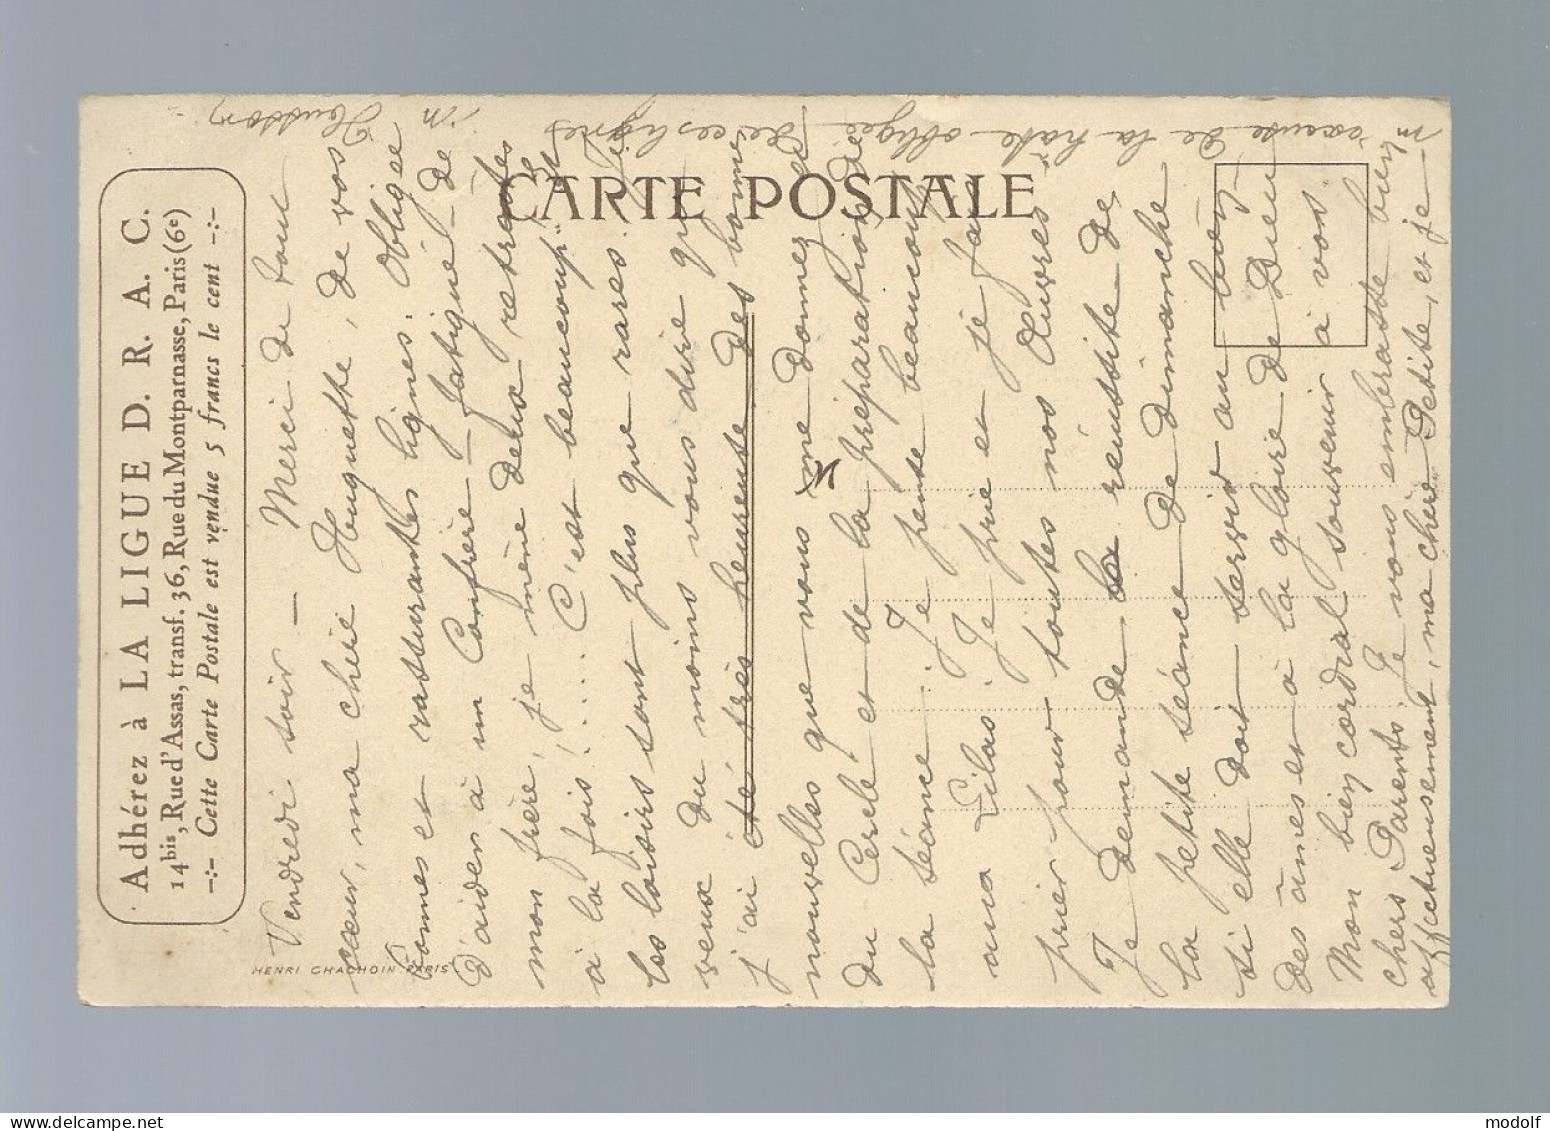 Adhérez à LA LIGUE D. R. A. C.
14bis, Rue d'Assas, transf. 36, Rue du Montparnasse, Paris (6e)
-:- Cette Carte Postale est vendue 5 francs le cent -:-
HENRI CHACHOIN PARIS
CARTE POSTALE
Vendredi soir — Merci de tout
cœur, ma chère Huguette, de vos
bonnes et rassurantes lignes. Obligée
d'aider à un Confrère — fatigué — de
mon frère, je mène deux retraites
à la fois!.... C'est beaucoup! et
les loisirs sont plus que rares. Je
veux du moins vous dire que
j'ai été très heureuse des bonnes
nouvelles que vous me donnez
du Cercle et de la préparation de
la séance. Je pense beaucoup
aux Lilas. Je prie et je fais
prier pour toutes nos Œuvres
Je demande la réussite de
la petite séance de dimanche
si elle doit servir au bien
des âmes et à la gloire de Dieu
Mon bien cordial souvenir à vos
chers Parents. Je vous embrasse bien
affectueusement, ma chère Petite, et je
m'excuse de la hâte obligée de ces lignes
M Husson